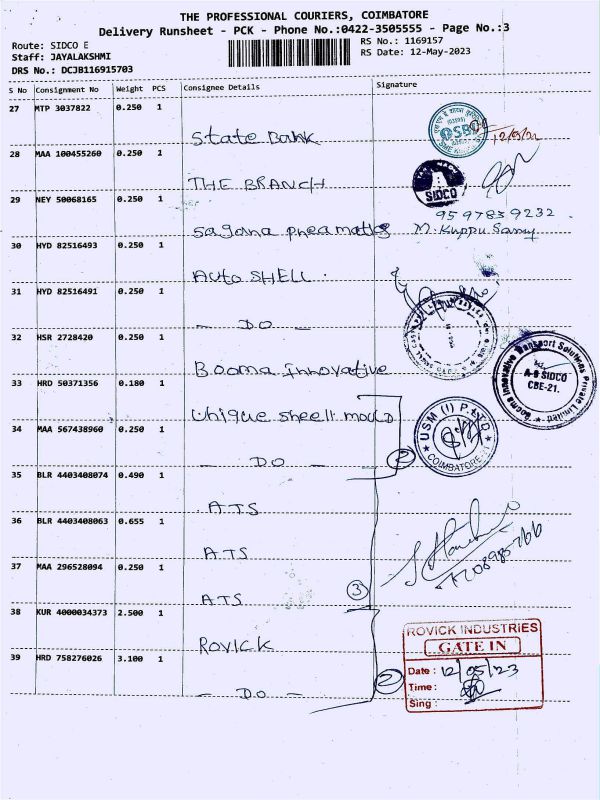 THE PROFESSIONAL COURIERS, COIMBATORE
Delivery Runsheet - PCK - Phone No.:0422-3505555 - Page No.:3
Route: SIDCO E
RS No.: 1169157
Staff: JAYALAKSHMI
RS Date: 12-May-2023
DRS No.: DCJB116915703
S No Consignment No Weight PCS Consignee Details Signature
27 MTP 3037822 0.250 1
State Bank
28 MAA 100455260 0.250 1
THE BRANCH
SIDCO
29 NEY 50068165 0.250 1
9597839232
Sagana pneamatics M. Kuppu Samy
30 HYD 82516493 0.250 1
Auto SHELL.
31 HYD 82516491 0.250 1
- DO -
32 HSR 2728420 0.250 1
Booma innovative
Booma Innovative Transport Solutions Private Limited
A-9 SIDCO
CBE-21.
33 HRD 50371356 0.180 1
Unique sheell mould
34 MAA 567438960 0.250 1
USM (I) P LTD
COIMBATORE-21
- DO - 2
35 BLR 4403408074 0.490 1
ATS
36 BLR 4403408063 0.655 1
ATS
37 MAA 296528094 0.250 1
ATS 3
38 KUR 4000034373 2.500 1
ROVICK
ROVICK INDUSTRIES
GATE IN
39 HRD 758276026 3.100 1
Date : 12/05/23
Time :
Sing :
- DO - 2